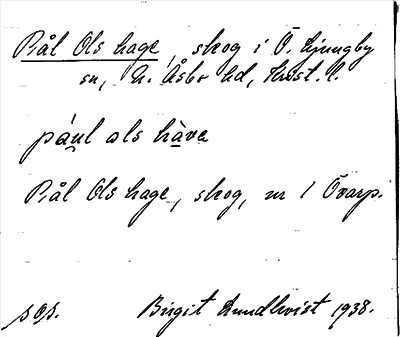 Pål Ols hage, skog i Ö. Ljungby
sn, N. Åsbo hd, Krist. l.
pául als hàva
Pål Ols hage, skog, nr 1 Övarp.
sos. Birgit Lundkvist 1938.